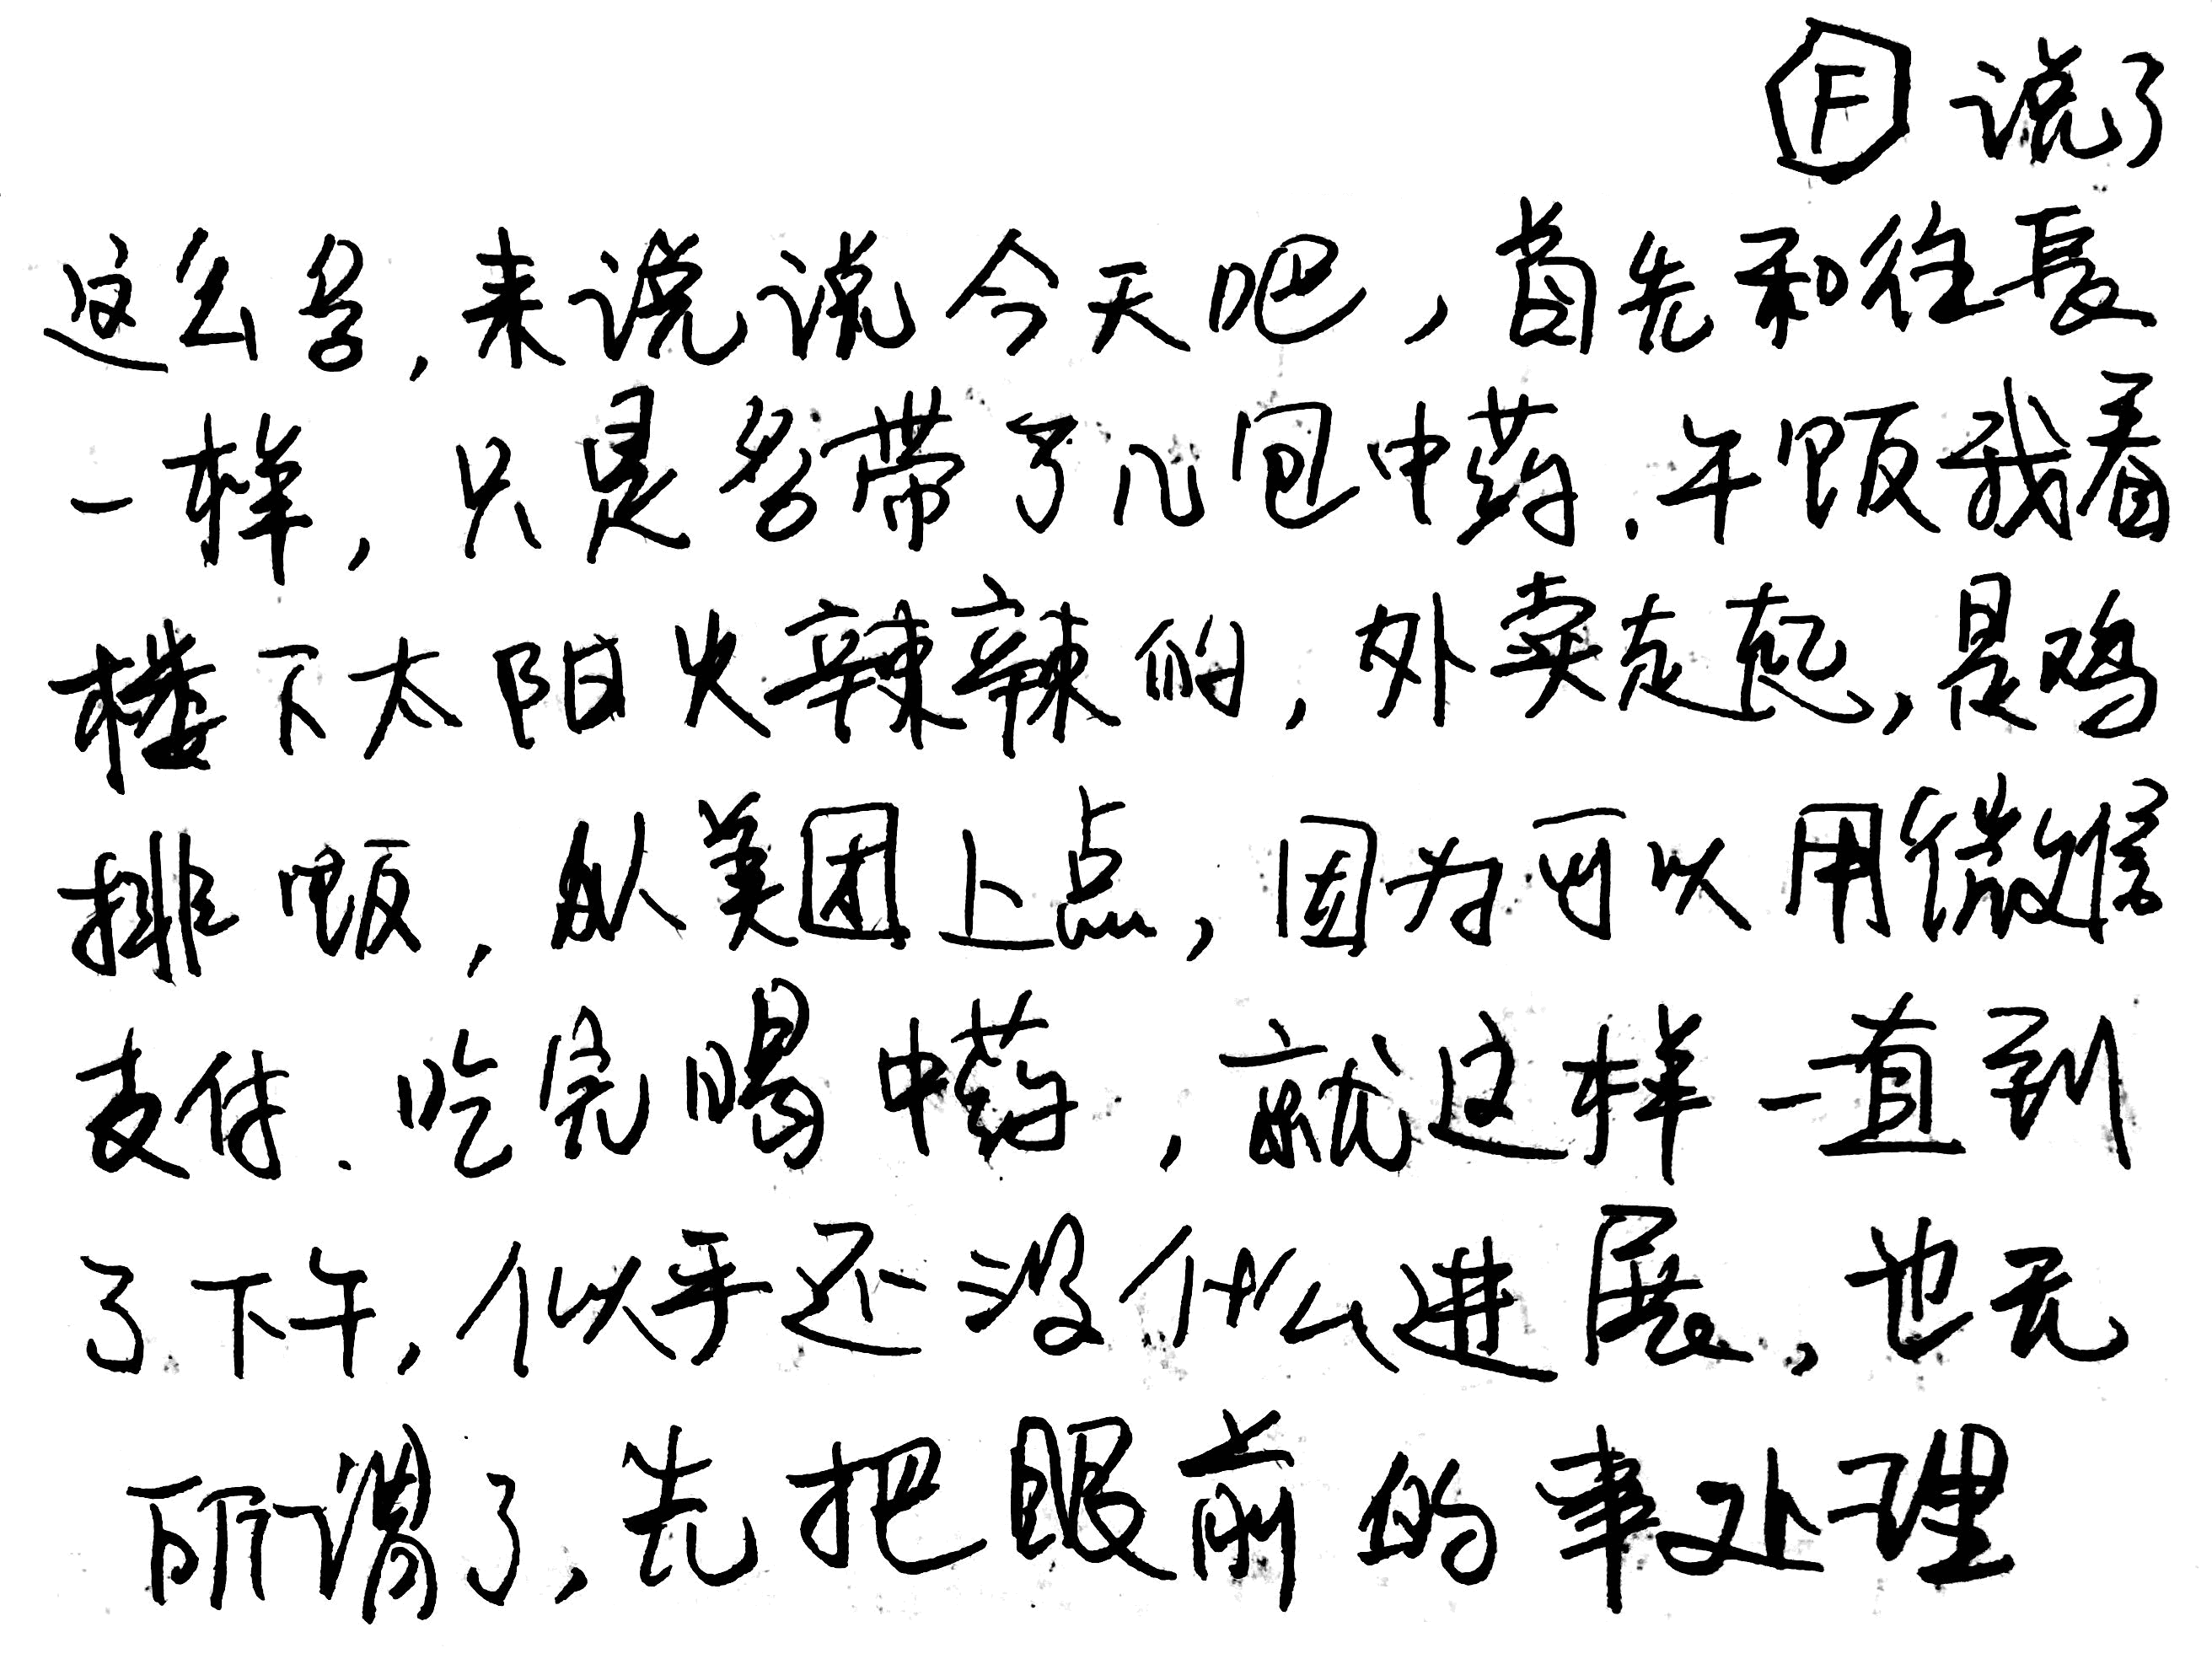 F 说了
这么多,来说说今天吧,首先和往长
一样,只是多带了几包中药.午饭我看
楼下太阳火辣辣的,外卖走起,是鸡
排饭,从美团上点,因为可以用微信
支付.吃完喝中药,就这样一直到
了下午,似乎还没什么进展,也无
所谓了,先把眼前的事处理